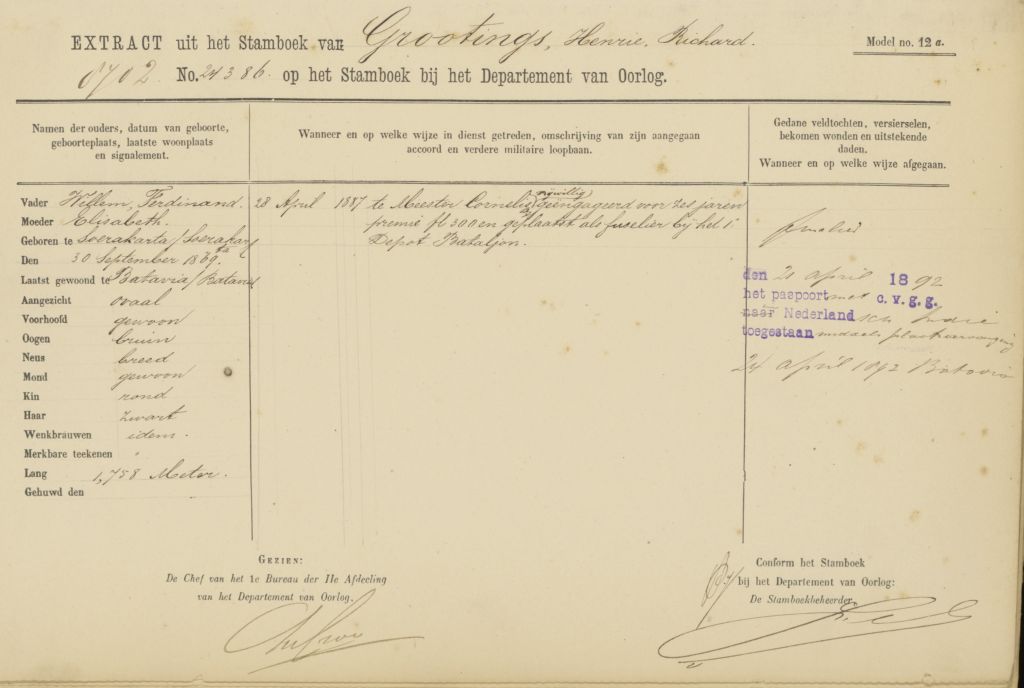 EXTRACT uit het Stamboek van Grootings, Henrie, Richard.
Model no. 12 a.
8702 No. 24386. op het Stamboek bij het Departement van Oorlog.
Namen der ouders, datum van geboorte,
geboorteplaats, laatste woonplaats
en signalement.
Wanneer en op welke wijze in dienst getreden, omschrijving van zijn aangegaan
accoord en verdere militaire loopbaan.
Gedane veldtochten, versierselen,
bekomen wonden en uitstekende
daden.
Wanneer en op welke wijze afgegaan.
Vader Willem, Ferdinand.
Moeder Elisabeth.
Geboren te Soerakarta/Soerakarta
Den 30 September 1869.
Laatst gewoond te Batavia/Batavia
Aangezicht ovaal
Voorhoofd gewoon
Oogen bruin
Neus breed
Mond gewoon
Kin rond
Haar zwart
Wenkbrauwen idem.
Merkbare teekenen "
Lang 1,758 Meter.
Gehuwd den
28 April 1887 te Meester Cornelis vrijwillig geëngageerd voor zes jaren
premie fl 300 en geplaatst als fuselier bij het 1e
Depot Bataljon.
den 21 april 1892
het paspoort met c. v. g. g.
naar Nederland Indie
toegestaan plaatsvervanging
24 april 1892 Batavia
GEZIEN:
De Chef van het 1e Bureau der IIe Afdeeling
van het Departement van Oorlog,
Conform het Stamboek
bij het Departement van Oorlog:
De Stamboekbeheerder,